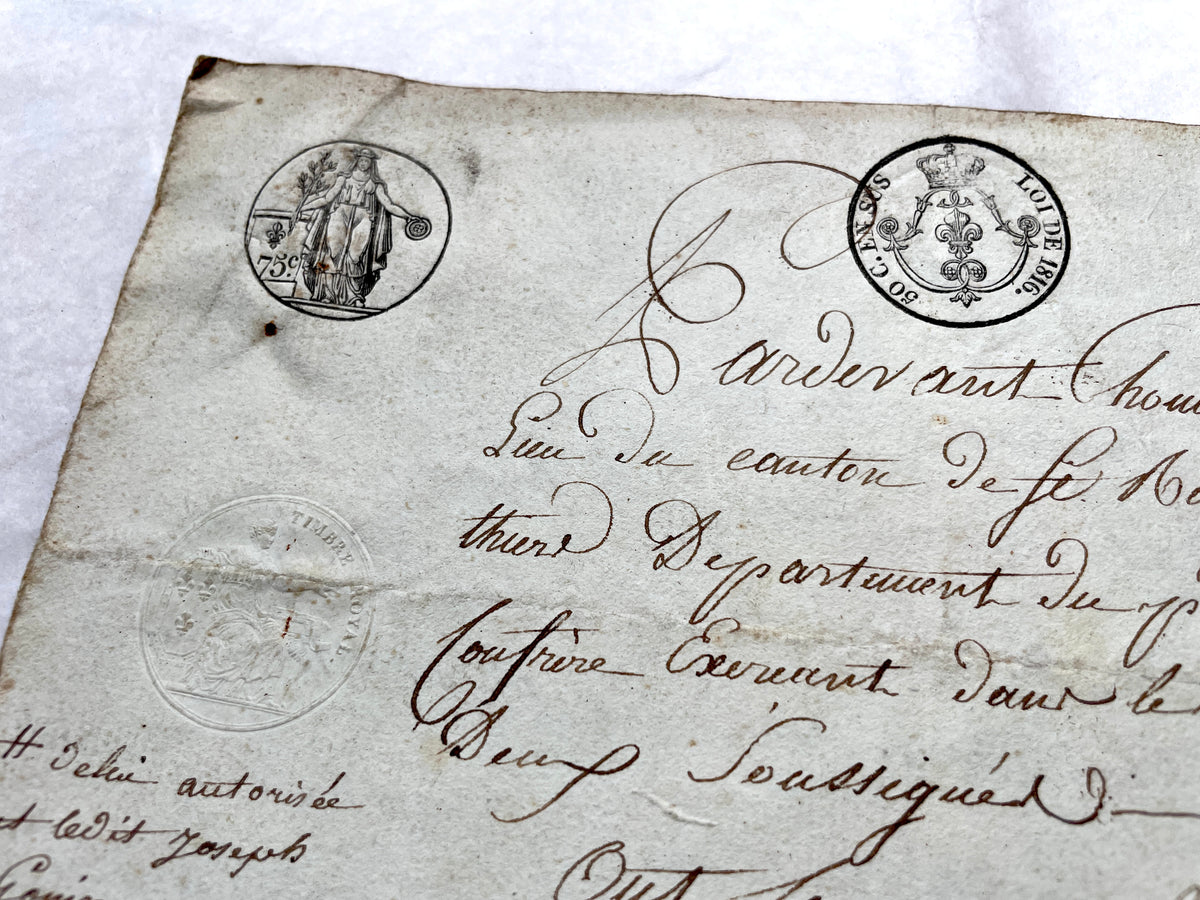 75 c
50 C. EN SUS
LOI DE 1816.
TIMBRE ROYAL.
Pardevant Thom
Lieu du canton de St. Ro
thiere Departement du p
Confrère Exerceant dans le
Deux Soussignés
# delui autorisée
et ledit Joseph
Ont